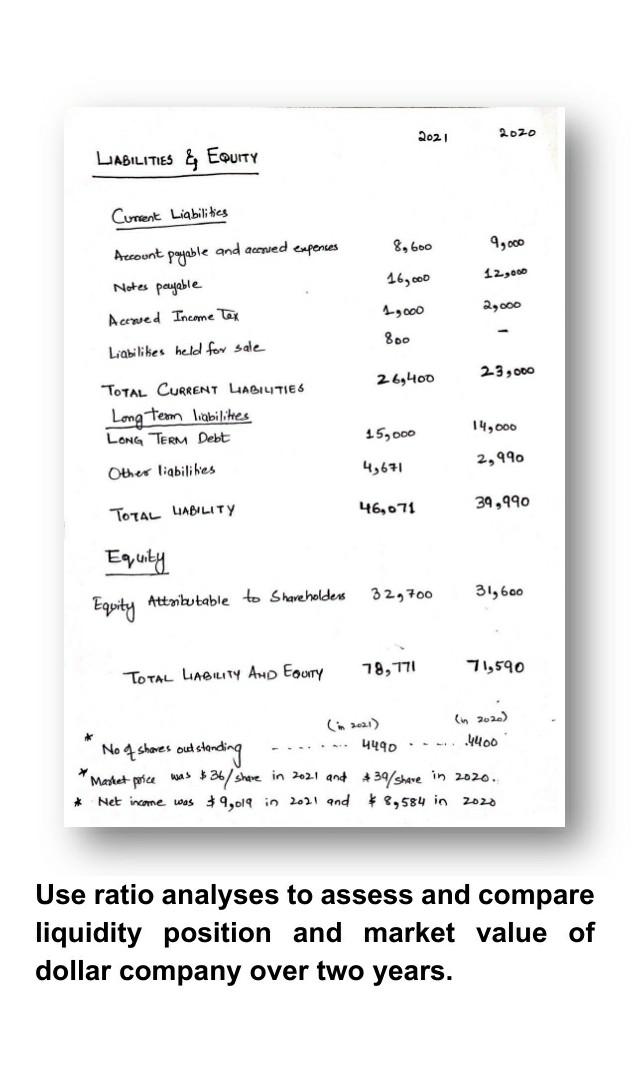 2021 2020
LIABILITIES & EQUITY
Current Liabilities
Account payable and accrued expenses 8,600 9,000
Notes payable 16,000 12,000
Accrued Income Tax 1,000 2,000
Liabilities held for sale 800 -
TOTAL CURRENT LIABILITIES 26,400 23,000
Long term liabilities
LONG TERM Debt 15,000 14,000
Other liabilities 4,671 2,990
TOTAL LIABILITY 46,071 39,990
Equity
Equity Attributable to Shareholders 32,700 31,600
TOTAL LIABILITY AND EQUITY 78,771 71,590
(in 2021) (in 2020)
* No of shares outstanding ------ 4490 ------ 4400
* Market price was $36/share in 2021 and $39/share in 2020.
* Net income was $9,019 in 2021 and $8,584 in 2020
Use ratio analyses to assess and compare
liquidity position and market value of
dollar company over two years.